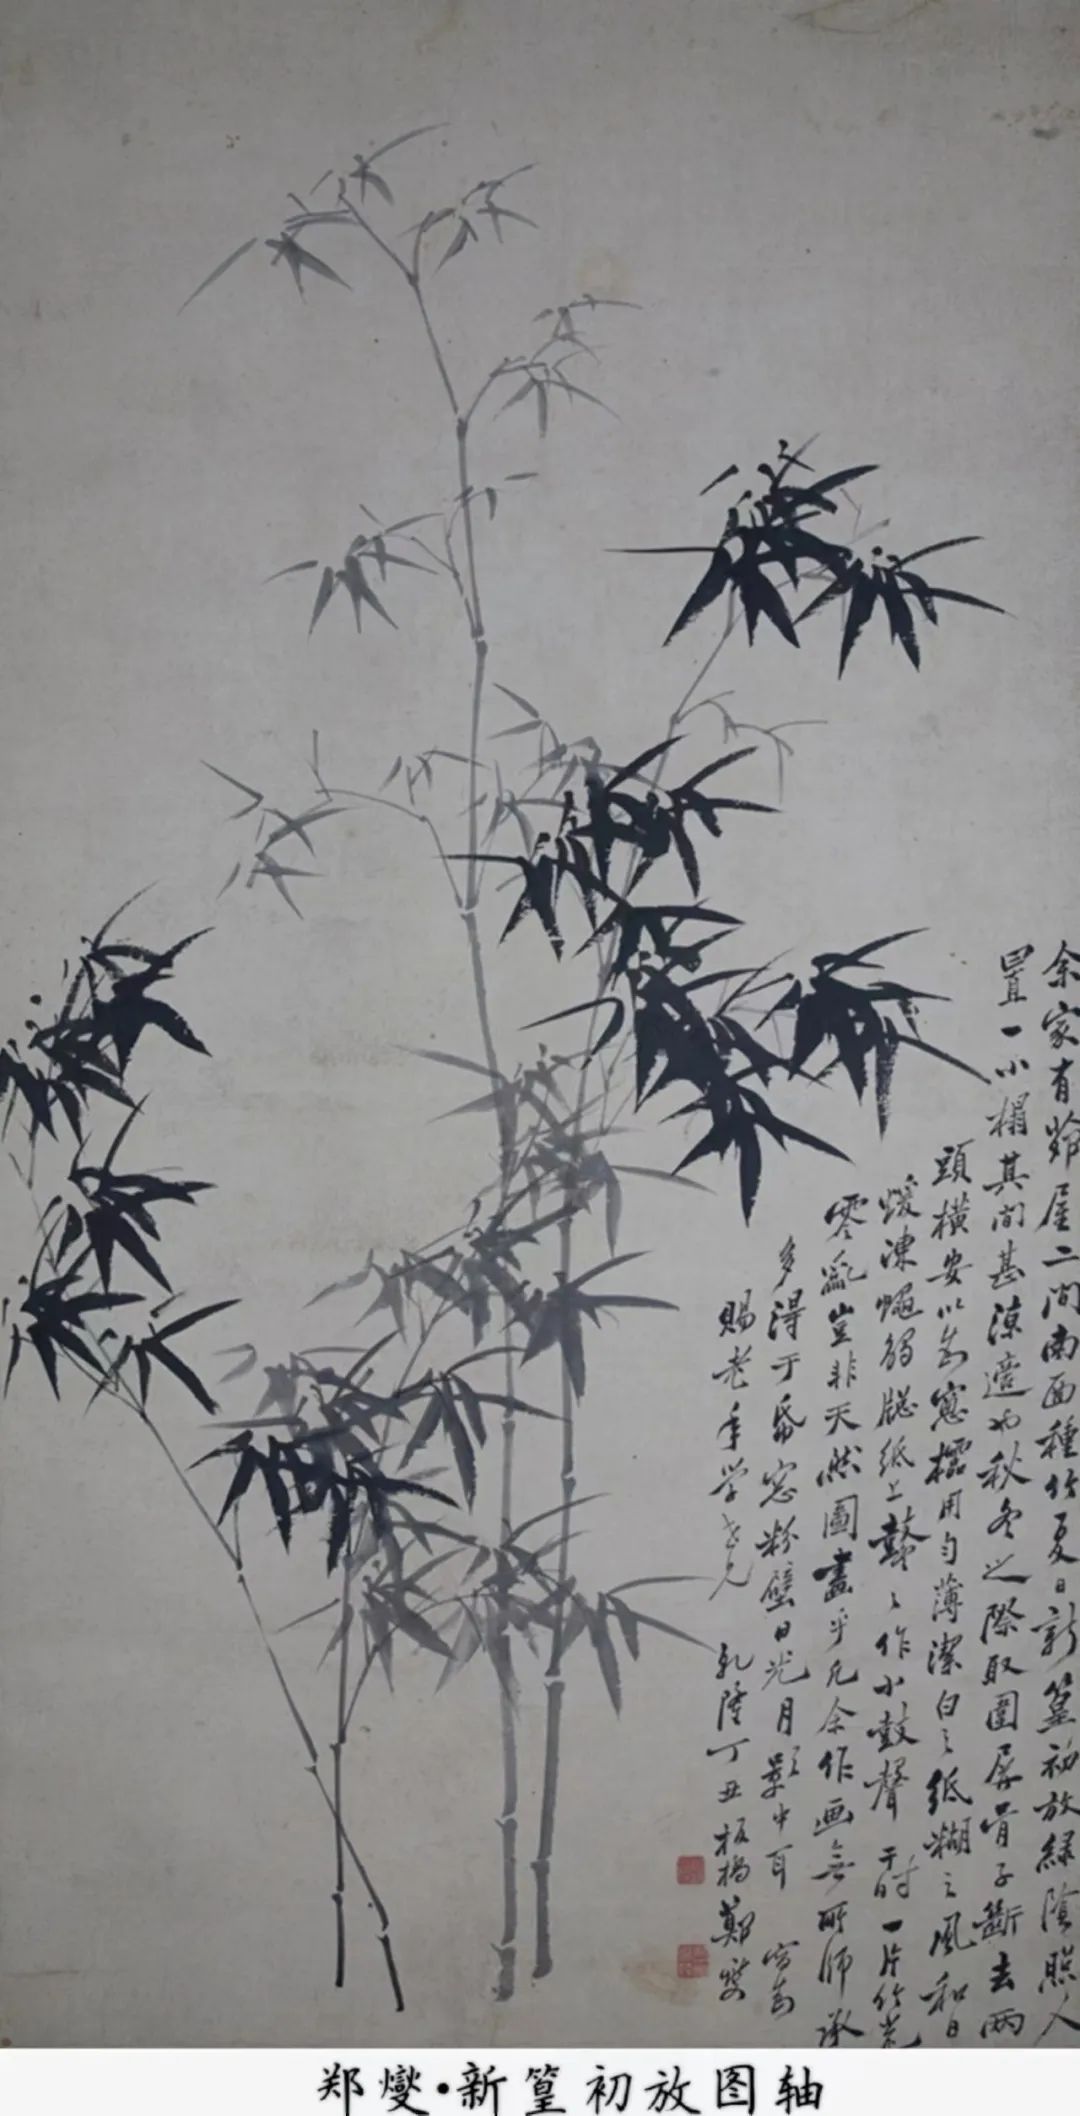 余家有茆屋二间南面種竹夏日新篁初放緑陰照人
置一小榻其间甚涼適也秋冬之際取圍屏骨子斷去两
頭横安以為窓櫺用匀薄潔白之紙糊之風和日
煖凍蠅觸牕紙上鼕〻作小鼓聲于时一片竹影
零亂豈非天然圖畫乎凡余作画無所師承
多得于㡧窓粉壁日光月影中耳 寫為
賜老年学老兄 乾隆丁丑板橋鄭燮
郑燮·新篁初放图轴